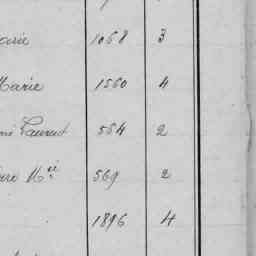 1068 3
Marie 1560 4
Laurent 554 2
Mie 569 2
1896 4